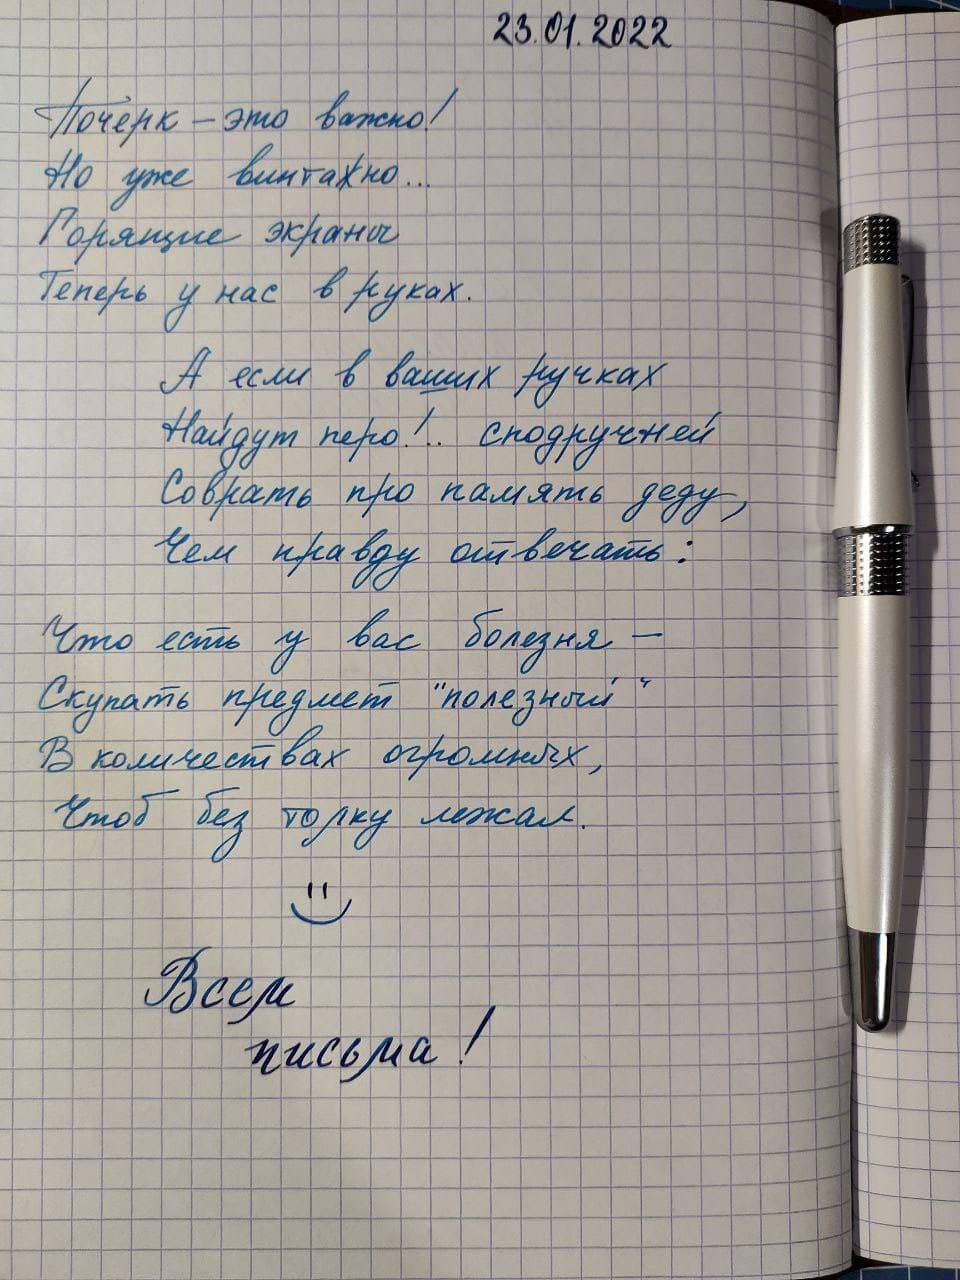 23.01.2022
Почерк – это важно!
Но уже винтажно...
Горящие экраны
Теперь у нас в руках.
А если в ваших ручках
Найдут перо!.. сподручней
Соврать про память деду,
Чем правду отвечать:
Что есть у вас болезня –
Скупать предмет "полезный"
В количествах огромных,
Чтоб без толку лежал.
Всем
письма!